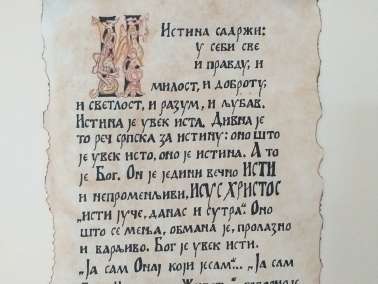 Истина садржи:
у себи све
и правду; и
милост, и доброту;
и светлост, и разум, и љубав.
Истина је увек иста. Дивна је
то реч српска за истину: оно што
је увек исто, оно је истина. А то
је Бог. Он је једини вечно ИСТИ
и непроменљиви, ИСУС ХРИСТОС
„исти јуче, данас и сутра“. Оно
што се мења, обмана је, пролазно
и варљиво. Бог је увек исти.
„Ја сам Онај који јесам“... „Ја сам